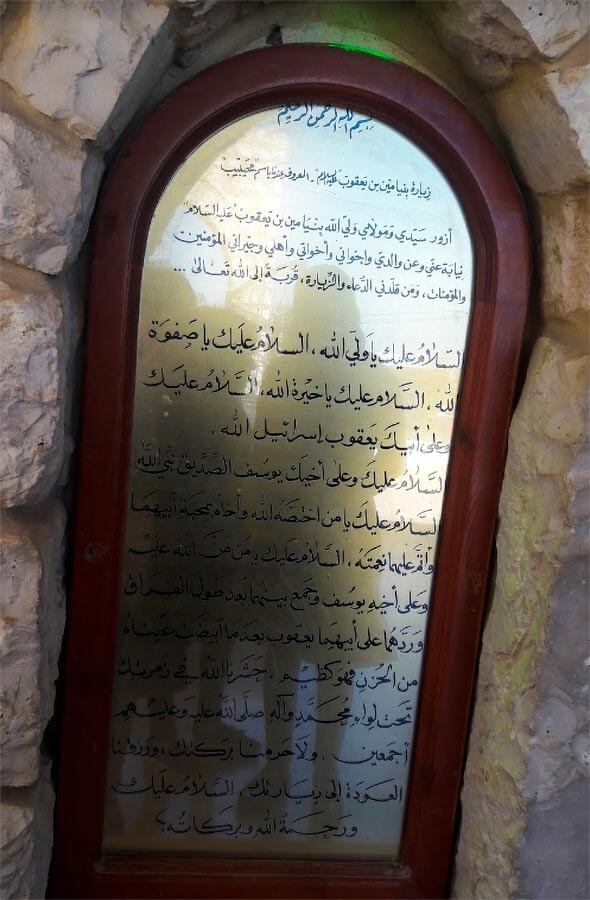 بسم الله الرحمن الرحيم
زيارة بنيامين بن يعقوب عليه السلام - المعروف
أزور سيّدي ومولاي وليّ الله بنيامين بن يعقوب "عليه السلام"
نيابة عني وعن والديّ وإخواني وأخواتي وأهلي وجيراني المؤمنين
والمؤمنات، ومن قلّدني الدّعاء والزّيارة، قربة إلى الله تعالى ...
السّلامُ عليك يا وليّ الله، السلامُ عليك يا صفوة
الله، السّلام عليك يا خيرة الله، السّلامُ عليك
وعلى أبيك يعقوب إسرائيل الله.
السّلامُ عليكَ وعلى أخيك يوسف الصّدّيق نبيّ الله
السّلامُ عليكَ يا من اختصّهُ الله وأخاه بمحبّة أبيهما
وأتمّ عليهما نعمتهُ، السّلامُ عليك يا من مَنّ الله عليه
وعلى أخيه يوسف وجمع بينهما بعد طول الفراق
وردّهما على أبيهما يعقوب بعدما ابيضّت عيناهُ
من الحُزنِ فهو كظيم، حشرنا الله في زمرتك
تحت لواء محمّدٍ وآله صلّى اللهُ عليه وعليهم
أجمعين. ولا حرمنا بركتك، ورزقنا
العودة إلى زيارتك، السّلامُ عليك
ورحمة الله وبركاته